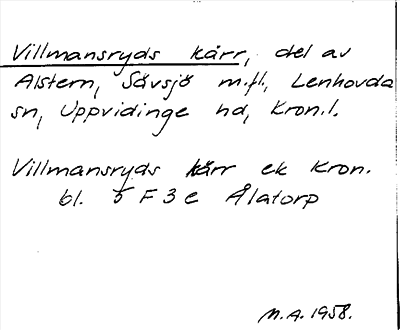 Villmansryds kärr, del av
Alstern, Sävsjö m.fl., Lenhovda
sn, Uppvidinge hd, Kron.l.
Villmansryds kärr ek Kron.
bl. 5 F 3 e Ålatorp
M.A. 1958.